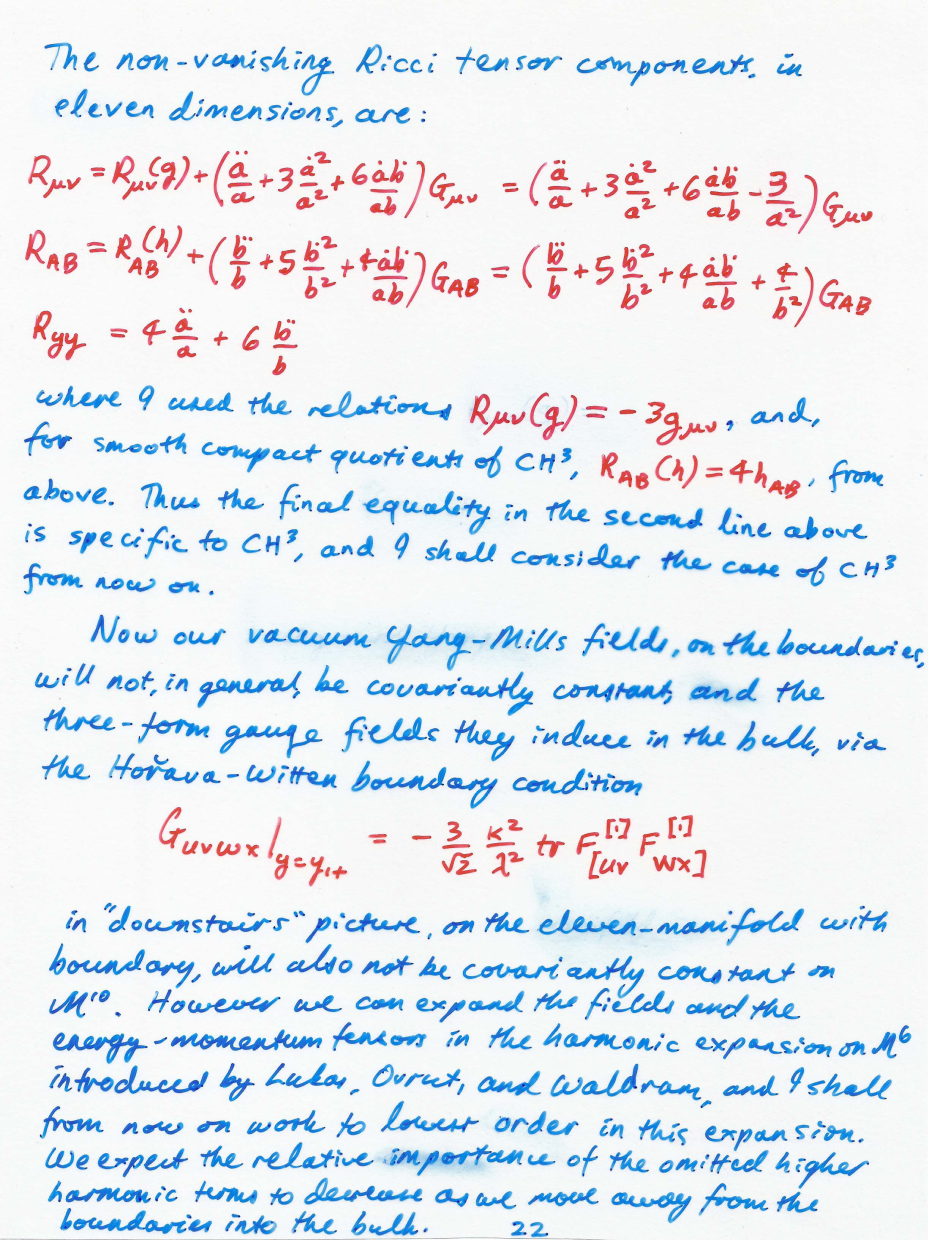 The non-vanishing Ricci tensor components, in
eleven dimensions, are:
R_μν = R_μν(g) + (ä/a + 3 ȧ²/a² + 6 ȧḃ/ab) G_μν = (ä/a + 3 ȧ²/a² + 6 ȧḃ/ab - 3/a²) G_μν
R_AB = R_AB(h) + (b̈/b + 5 ḃ²/b² + 4 ȧḃ/ab) G_AB = (b̈/b + 5 ḃ²/b² + 4 ȧḃ/ab + 4/b²) G_AB
R_yy = 4 ä/a + 6 b̈/b
where I used the relations R_μν(g) = -3g_μν, and,
for smooth compact quotients of CH³, R_AB(h) = 4h_AB, from
above. Thus the final equality in the second line above
is specific to CH³, and I shall consider the case of CH³
from now on.
Now our vacuum Yang-Mills fields, on the boundaries,
will not, in general, be covariantly constant, and the
three-form gauge fields they induce in the bulk, via
the Hořava-Witten boundary condition
G_UVWX|_y=y₁₊ = - 3/√2 κ²/λ² tr F^[1]_[UV F^[1]_WX]
in "downstairs" picture, on the eleven-manifold with
boundary, will also not be covariantly constant on
M¹⁰. However we can expand the fields and the
energy-momentum tensors in the harmonic expansion on M⁶
introduced by Lukas, Ovrut, and Waldram, and I shall
from now on work to lowest order in this expansion.
We expect the relative importance of the omitted higher
harmonic terms to decrease as we move away from the
boundaries into the bulk.
22